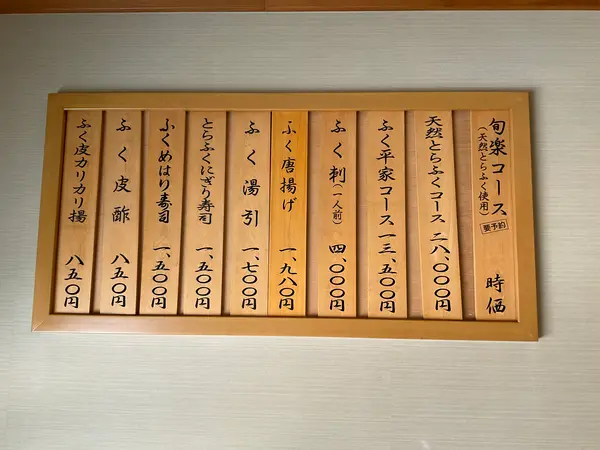 旬楽コース
(天然とらふく使用)
要予約
時価
天然とらふくコース 二八、〇〇〇円
ふく平家コース 一三、五〇〇円
ふく刺(一人前) 四、〇〇〇円
ふく唐揚げ 一、九八〇円
ふく湯引 一、七〇〇円
とらふくにぎり寿司 一、五〇〇円
ふくめはり寿司 一、五〇〇円
ふく皮酢 八五〇円
ふく皮カリカリ揚 八五〇円